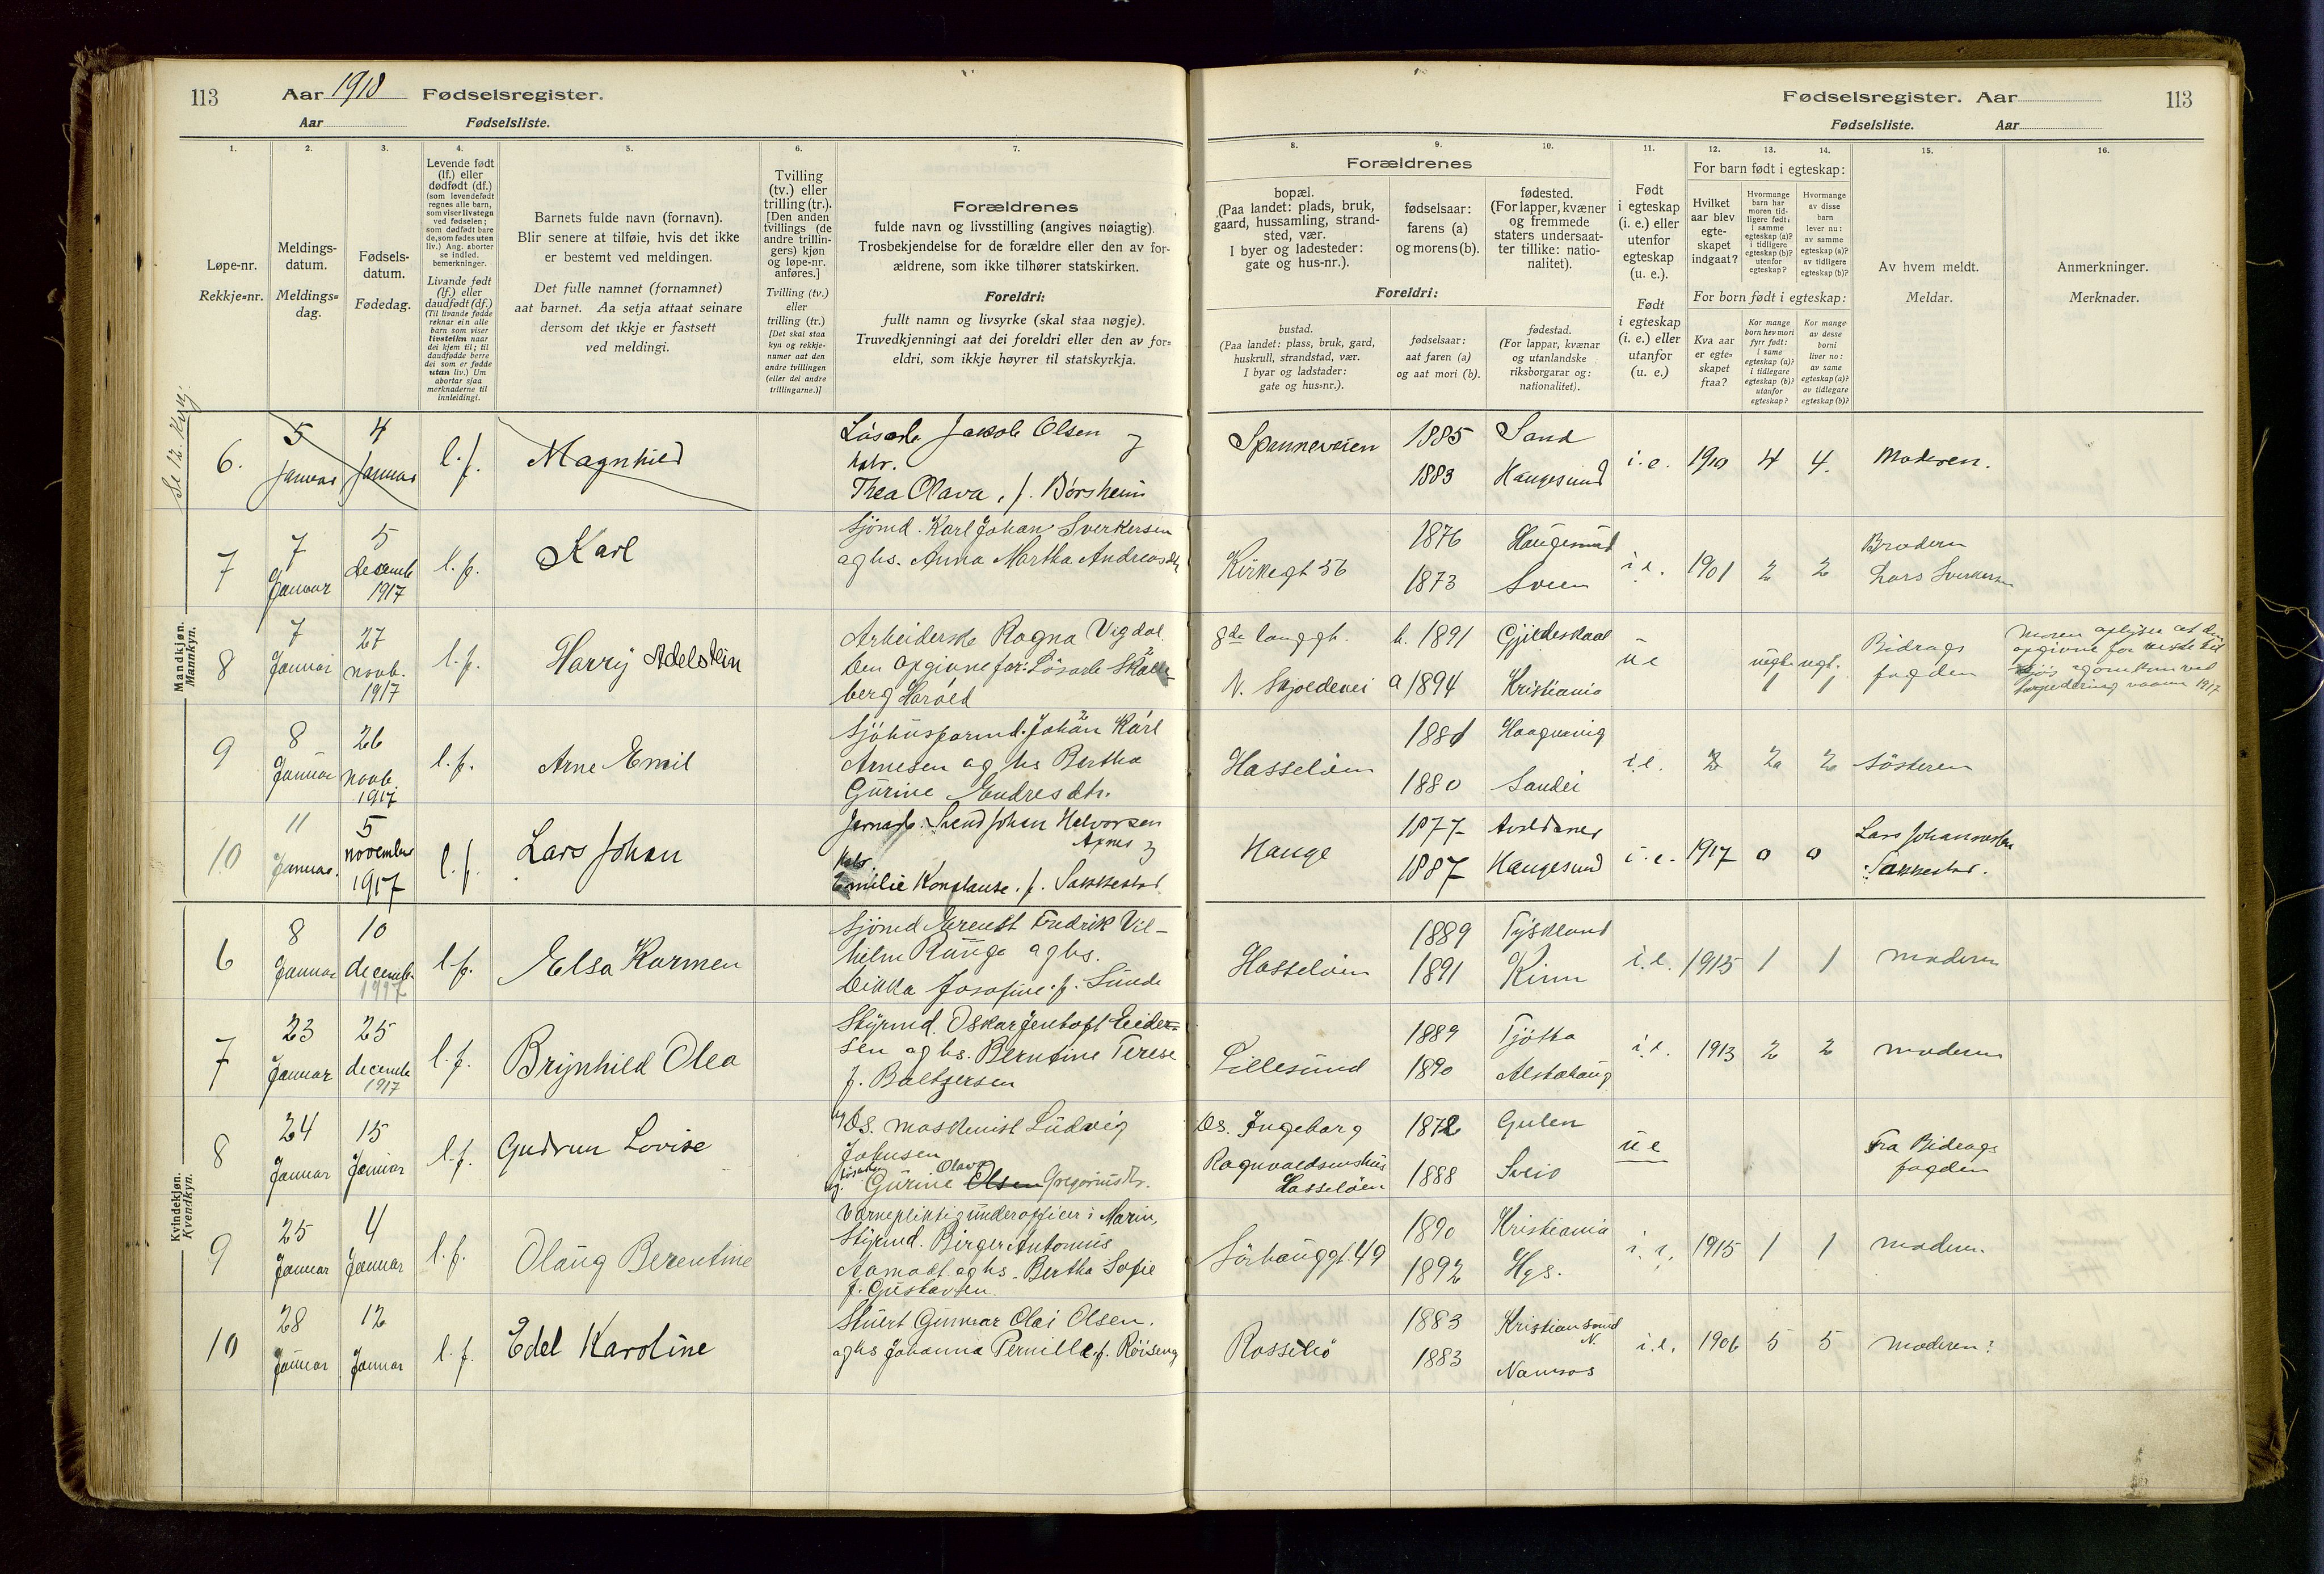 113
Aar 1918 Fødselsregister.
Aar Fødselsliste.
1. 2. 3. 4. 5. 6. 7.
Løpe-nr.
Rekkje-nr.
Meldings-
datum.
Meldings-
dag.
Fødsels-
datum.
Fødedag.
Levende født
(lf.) eller
dødfødt (df.)
(som levendefødt
regnes alle barn,
som viser livstegn
ved fødselen;
som dødfødt bare
de, som fødes uten
liv.) Ang. aborter
se indled.
bemerkninger.
Livande født
(lf.) eller
daudfødt (df.)
(Til livande fødde
reknar ein alle
barn som viser
livsteikn naar
dei kjem til; til
daudfødde berre
dei som er fødde
utan liv.) Um
abortar sjaa
merknaderne til
innleidingi.
Barnets fulde navn (fornavn).
Blir senere at tilføie, hvis det ikke
er bestemt ved meldingen.
Det fulle namnet (fornamnet)
aat barnet. Aa setja attaat seinare
dersom det ikkje er fastsett
ved meldingi.
Tvilling
(tv.) eller
trilling (tr.).
[Den anden
tvillings (de
andre trillin-
gers) kjøn
og løpe-nr.
anføres.]
Tvilling (tv.)
eller
trilling (tr.)
[Det skal staa
kyn og rekkje-
numer aat den
andre tvillingen
(eller dei andre
trillingarne.)]
Forældrenes
fulde navn og livsstilling (angives nøiagtig).
Trosbekjendelse for de forældre eller den av for-
ældrene, som ikke tilhører statskirken.
Foreldri:
fullt namn og livsyrke (skal staa nøgje).
Truvedkjenningi aat dei foreldri eller den av for-
eldri, som ikkje høyrer til statskyrkja.
Mandkjøn.
Mannkyn.
6. 5 Januar 4 Januar l. f. Magnhild
Løsarb Jakob Olsen
Thea Olava, f. Børsheim
7 7 Januar 5 decemb 1917 l. f. Karl
Sjømd. Karl Johan Sverkersen
og hs. Anna Martha Andreasdtr
8 7 Januar 27 novb. 1917 l. f. Harry Adelstein
Arbeiderske Ragna Vigdal
Den opgivne far: Løsarb
berg Harald
9 8 Januar 26 novb. 1917 l. f. Arne Emil
Johan Karl
Arnesen og hs Bertha
Gurine Endresdtr.
10 11 Januar. 5 november 1917 l. f. Lars Johan
Svend Johan Halvorsen
Emilie Konstanse, f. Sakkestad
Kvindekjøn.
Kvendkyn.
6 8 Januar 10 decemb. 1917 l. f. Elsa Karmen
Sjømd Ernest Fredrik Vil-
helm Runge og hs.
Dikka Josofine f. Sunde
7 23 Januar 25 decemb 1917 l. f. Brynhild Olea
Styrmd. Oskar Jentoft Eider-
sen og hs. Berntine Terese
f. Baltzersen
8 24 Januar 15 Januar l. f. Gudrun Lovise
Ds. maskinist Ludvig
Johnsen
Olava
Gurine Olsen Gregoriusdtr.
9 25 Januar 4 Januar l. f. Olaug Berentine
Værnepliktig underofficer i Marin,
Styrmd. Birger Antonius
Aamodt og hs. Bertha Sofie
f. Gustavsen.
10 28 Januar 12 Januar l. f. Edel Karoline
Stuert Gunnar Olai Olsen.
og hs Johanna Pernille f. Röiseng
Fødselsregister. Aar 113
Fødselsliste. Aar
8. 9. 10. 11. 12. 13. 14. 15. 16.
Forældrenes
bopæl.
(Paa landet: plads, bruk,
gaard, hussamling, strand-
sted, vær.
I byer og ladesteder:
gate og hus-nr.).
fødselsaar:
farens (a)
og morens (b).
fødested.
(For lapper, kvæner
og fremmede
staters undersaat-
ter tillike: natio-
nalitet).
Foreldri:
bustad.
(Paa landet: plass, bruk, gard,
huskrull, strandstad, vær.
I byar og ladstader:
gate og hus-nr.).
fødselsaar:
aat faren (a)
og aat mori (b).
fødestad.
(For lappar, kvænar
og utanlandske
riksborgarar og:
nationalitet).
Født
i egteskap
(i. e.) eller
utenfor
egteskap
(u. e.).
Født
i egteskap
(i. e.) eller
utanfor
(u. e.)
For barn født i egteskap:
Hvilket
aar blev
egte-
skapet
indgaat?
Hvormange
barn har
moren tid-
ligere født:
i samme
egteskap (a)?
i tidligere
egteskap (b)?
utenfor
egteskap?
Hvormange
av disse
barn
lever nu:
av samme
egteskap (a)?
av tidligere
egteskap (b)?
For born født i egteskap:
Kva aar
er egte-
skapet
fraa?
Kor mange
born hev mori
fyrr født:
i same
egteskap (a)?
i tidlegare
egteskap (b)?
utanfor
egteskap?
Kor mange
av desse
borni
liver no:
av same
egteskap (a)?
av tidlegare
egteskap (b)?
Av hvem meldt.
Meldar.
Anmerkninger.
Merknader.
Spanneveien 1885 Sand
1883 Haugesund i. e. 1910 4 4. Moderen.
Kirkegt 56 1876 Haugesund
1873 Sveen i. e. 1901 2 2 Brodern
Lars Sverkersen
b. 1891 Gjildeskaal
N. Skjoldavei a 1894 Kristiania u e 1 1 Bidrags
fogden
Hasseløen 1881
1880 Sandei i. e. 2a 2 Søsteren
Hauge 1877
1887 Haugesund i. e. 1917 0 0 Lars Johannesen
Sakkestad.
Hasseløen 1889 Tyskland
1891 Kinn i. e. 1915 1 1 moderen
Lillesund 1889 Tjøtta
1890 Alstahaug i. e. 1913 2 2 moderen
Ds. Ingeborg 1872 Gulen
Ragnvaldsenshus
Hasseløen 1888 Sveio u e Fra Bidrags
fogden
Sørhauggt. 49 1890 Kristiania
1892 Hgs. i. e. 1915 1 1 modern.
Rossebø 1883 Kristiansund N.
1883 Namsos i. e. 1906 5 5 moderen